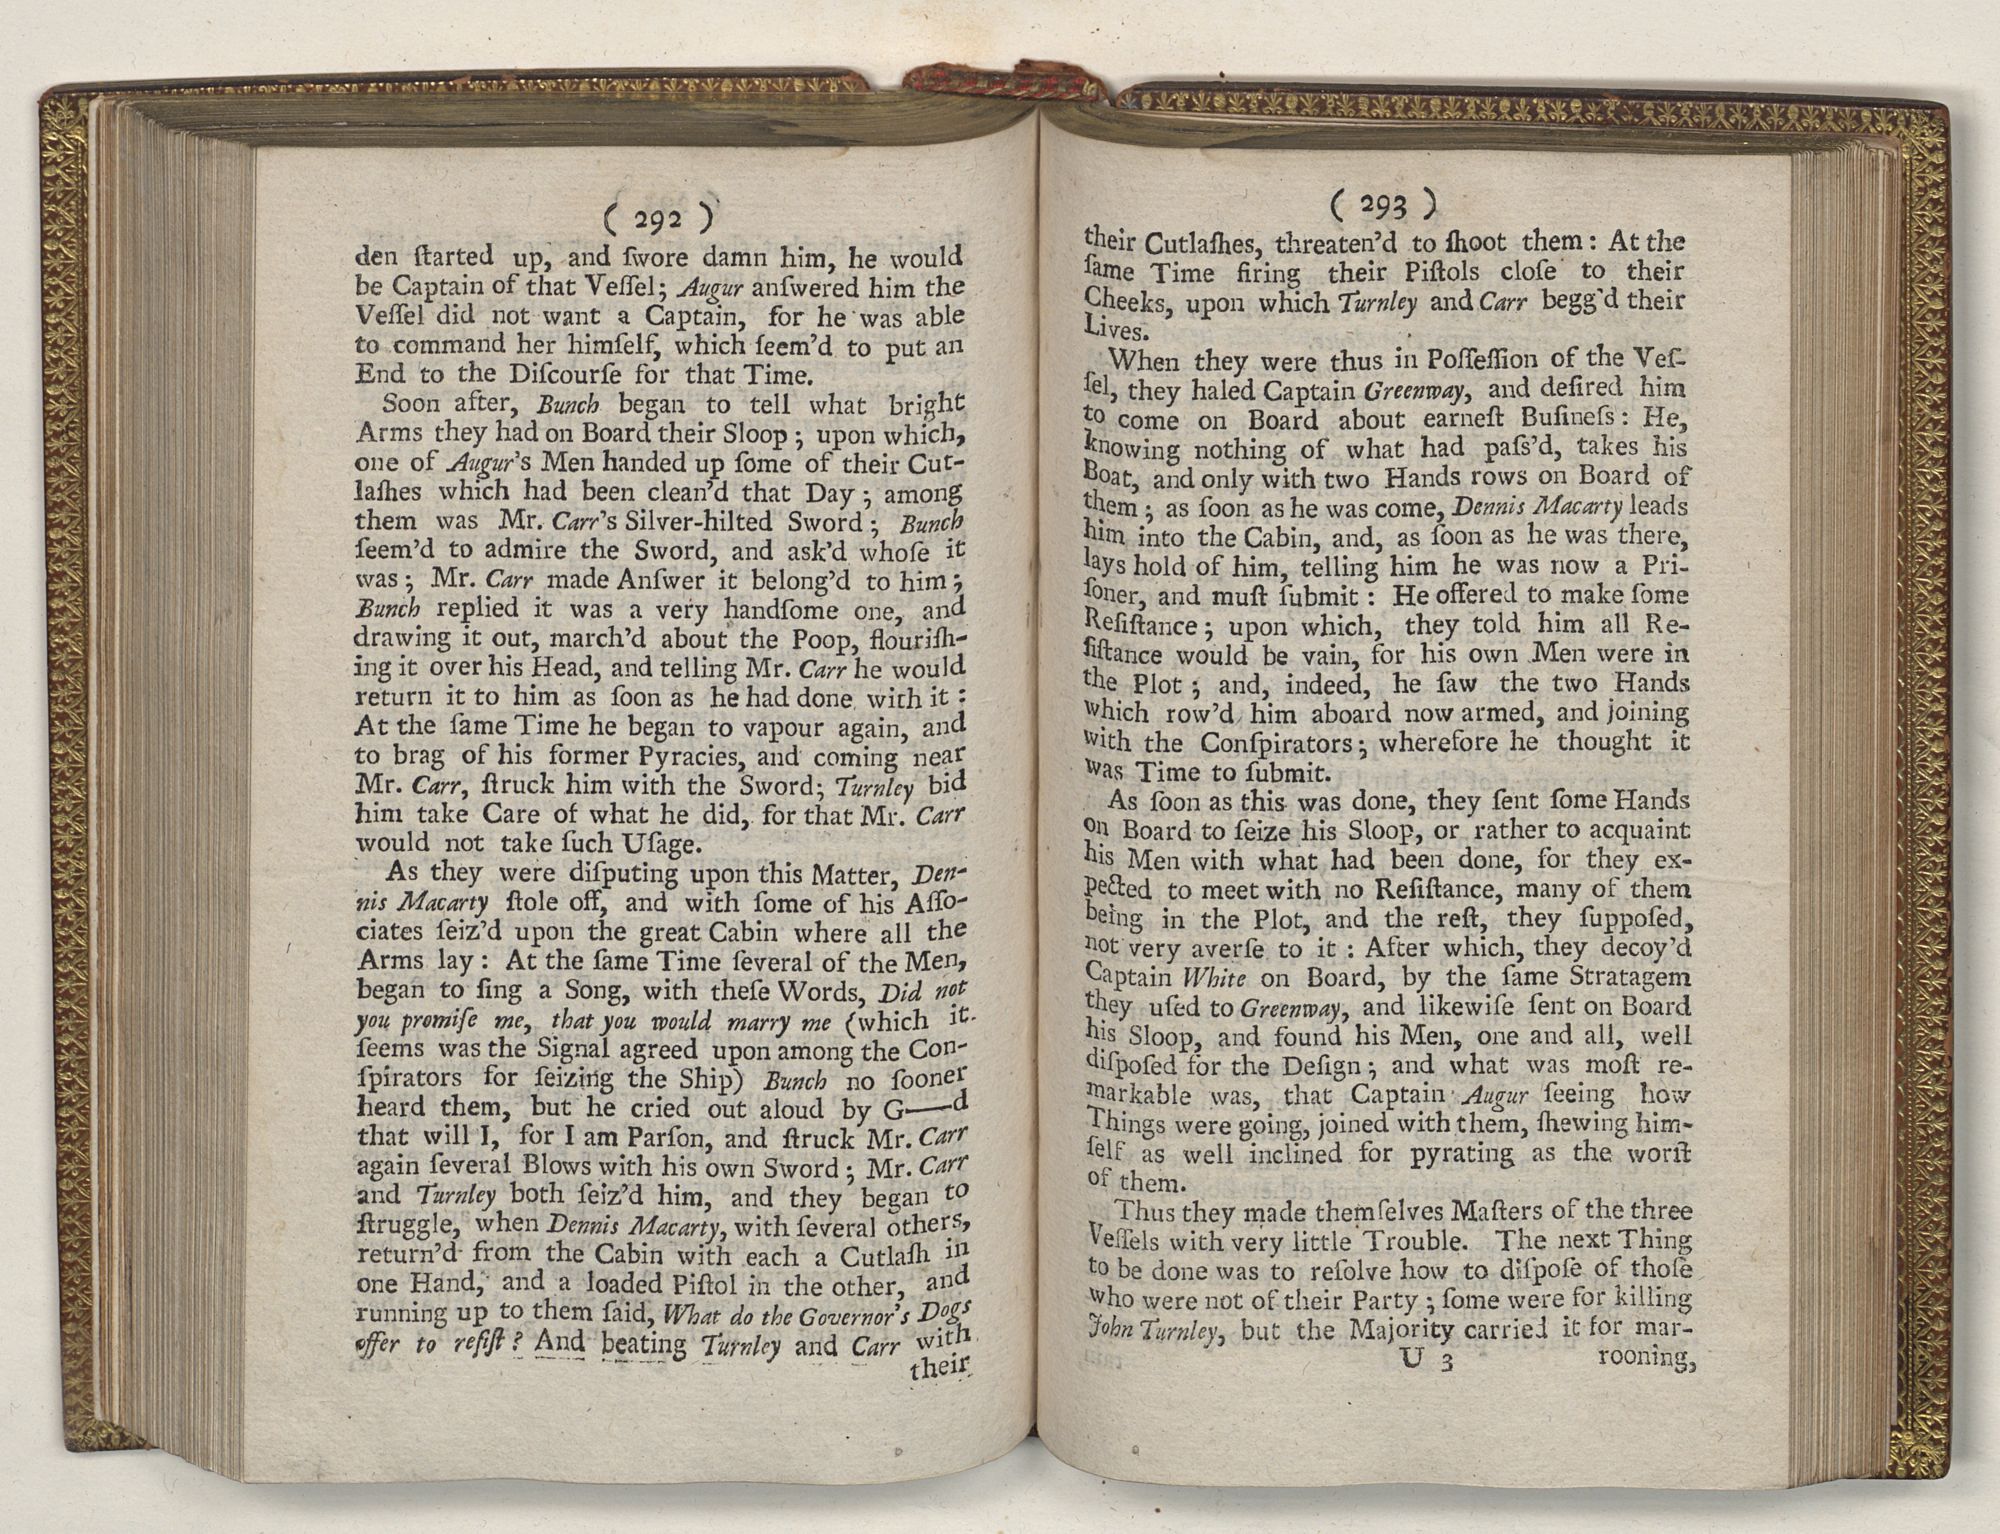 ( 292 )
den ſtarted up, and ſwore damn him, he would
be Captain of that Veſſel; Augur anſwered him the
Veſſel did not want a Captain, for he was able
to command her himſelf, which ſeem'd to put an
End to the Diſcourſe for that Time.
Soon after, Bunch began to tell what bright
Arms they had on Board their Sloop; upon which,
one of Augur's Men handed up ſome of their Cut-
laſhes which had been clean'd that Day; among
them was Mr. Carr's Silver-hilted Sword; Bunch
ſeem'd to admire the Sword, and ask'd whoſe it
was; Mr. Carr made Anſwer it belong'd to him;
Bunch replied it was a very handſome one, and
drawing it out, march'd about the Poop, flouriſh-
ing it over his Head, and telling Mr. Carr he would
return it to him as ſoon as he had done with it:
At the ſame Time he began to vapour again, and
to brag of his former Pyracies, and coming near
Mr. Carr, ſtruck him with the Sword; Turnley bid
him take Care of what he did, for that Mr. Carr
would not take ſuch Uſage.
As they were diſputing upon this Matter, Den-
nis Macarty ſtole off, and with ſome of his Aſſo-
ciates ſeiz'd upon the great Cabin where all the
Arms lay: At the ſame Time ſeveral of the Men,
began to ſing a Song, with theſe Words, Did not
you promiſe me, that you would marry me (which it
ſeems was the Signal agreed upon among the Con-
ſpirators for ſeizing the Ship) Bunch no ſooner
heard them, but he cried out aloud by G——d
that will I, for I am Parſon, and ſtruck Mr. Carr
again ſeveral Blows with his own Sword; Mr. Carr
and Turnley both ſeiz'd him, and they began to
ſtruggle, when Dennis Macarty, with ſeveral others,
return'd from the Cabin with each a Cutlaſh in
one Hand, and a loaded Piſtol in the other, and
running up to them ſaid, What do the Governor's Dogs
offer to reſiſt? And beating Turnley and Carr with
their
( 293 )
their Cutlaſhes, threaten'd to ſhoot them: At the
ſame Time firing their Piſtols cloſe to their
Cheeks, upon which Turnley and Carr begg'd their
Lives.
When they were thus in Poſſeſſion of the Veſ-
ſel, they haled Captain Greenway, and deſired him
to come on Board about earneſt Buſineſs: He,
knowing nothing of what had paſs'd, takes his
Boat, and only with two Hands rows on Board of
them; as ſoon as he was come, Dennis Macarty leads
him into the Cabin, and, as ſoon as he was there,
lays hold of him, telling him he was now a Pri-
ſoner, and muſt ſubmit: He offered to make ſome
Reſiſtance; upon which, they told him all Re-
ſiſtance would be vain, for his own Men were in
the Plot; and, indeed, he ſaw the two Hands
which row'd him aboard now armed, and joining
with the Conſpirators; wherefore he thought it
was Time to ſubmit.
As ſoon as this was done, they ſent ſome Hands
on Board to ſeize his Sloop, or rather to acquaint
his Men with what had been done, for they ex-
pected to meet with no Reſiſtance, many of them
being in the Plot, and the reſt, they ſuppoſed,
not very averſe to it: After which, they decoy'd
Captain White on Board, by the ſame Stratagem
they uſed to Greenway, and likewiſe ſent on Board
his Sloop, and found his Men, one and all, well
diſpoſed for the Deſign; and what was moſt re-
markable was, that Captain Augur ſeeing how
Things were going, joined with them, ſhewing him-
ſelf as well inclined for pyrating as the worſt
of them.
Thus they made themſelves Maſters of the three
Veſſels with very little Trouble. The next Thing
to be done was to reſolve how to diſpoſe of thoſe
who were not of their Party; ſome were for killing
John Turnley, but the Majority carried it for mar-
U 3 rooning,